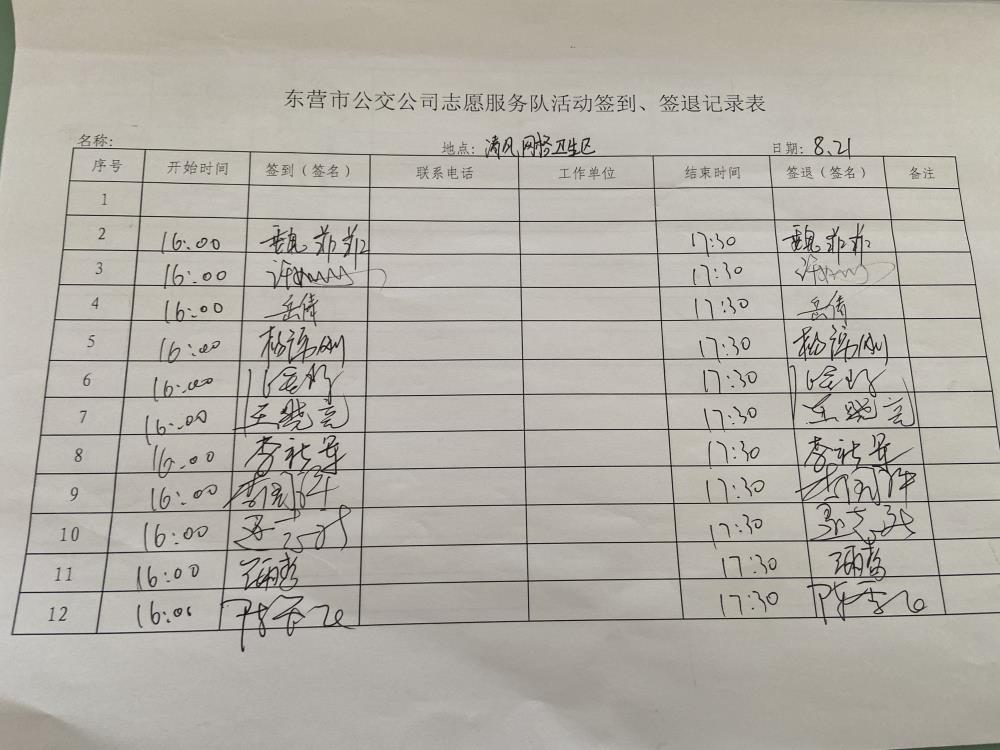 东营市公交公司志愿服务队活动签到、签退记录表
名称: 地点: 清风网格卫生区 日期: 8.21
序号 开始时间 签到（签名） 联系电话 工作单位 结束时间 签退（签名） 备注
1
2 16:00 魏菲菲 17:30 魏菲菲
3 16:00 17:30
4 16:00 岳倩 17:30 岳倩
5 16:00 杨 17:30 杨
6 16:00 17:30
7 16:00 王晓亮 17:30 王晓亮
8 16:00 李社军 17:30 李社军
9 16:00 李 17:30 李
10 16:00 17:30
11 16:00 17:30
12 16:00 17:30